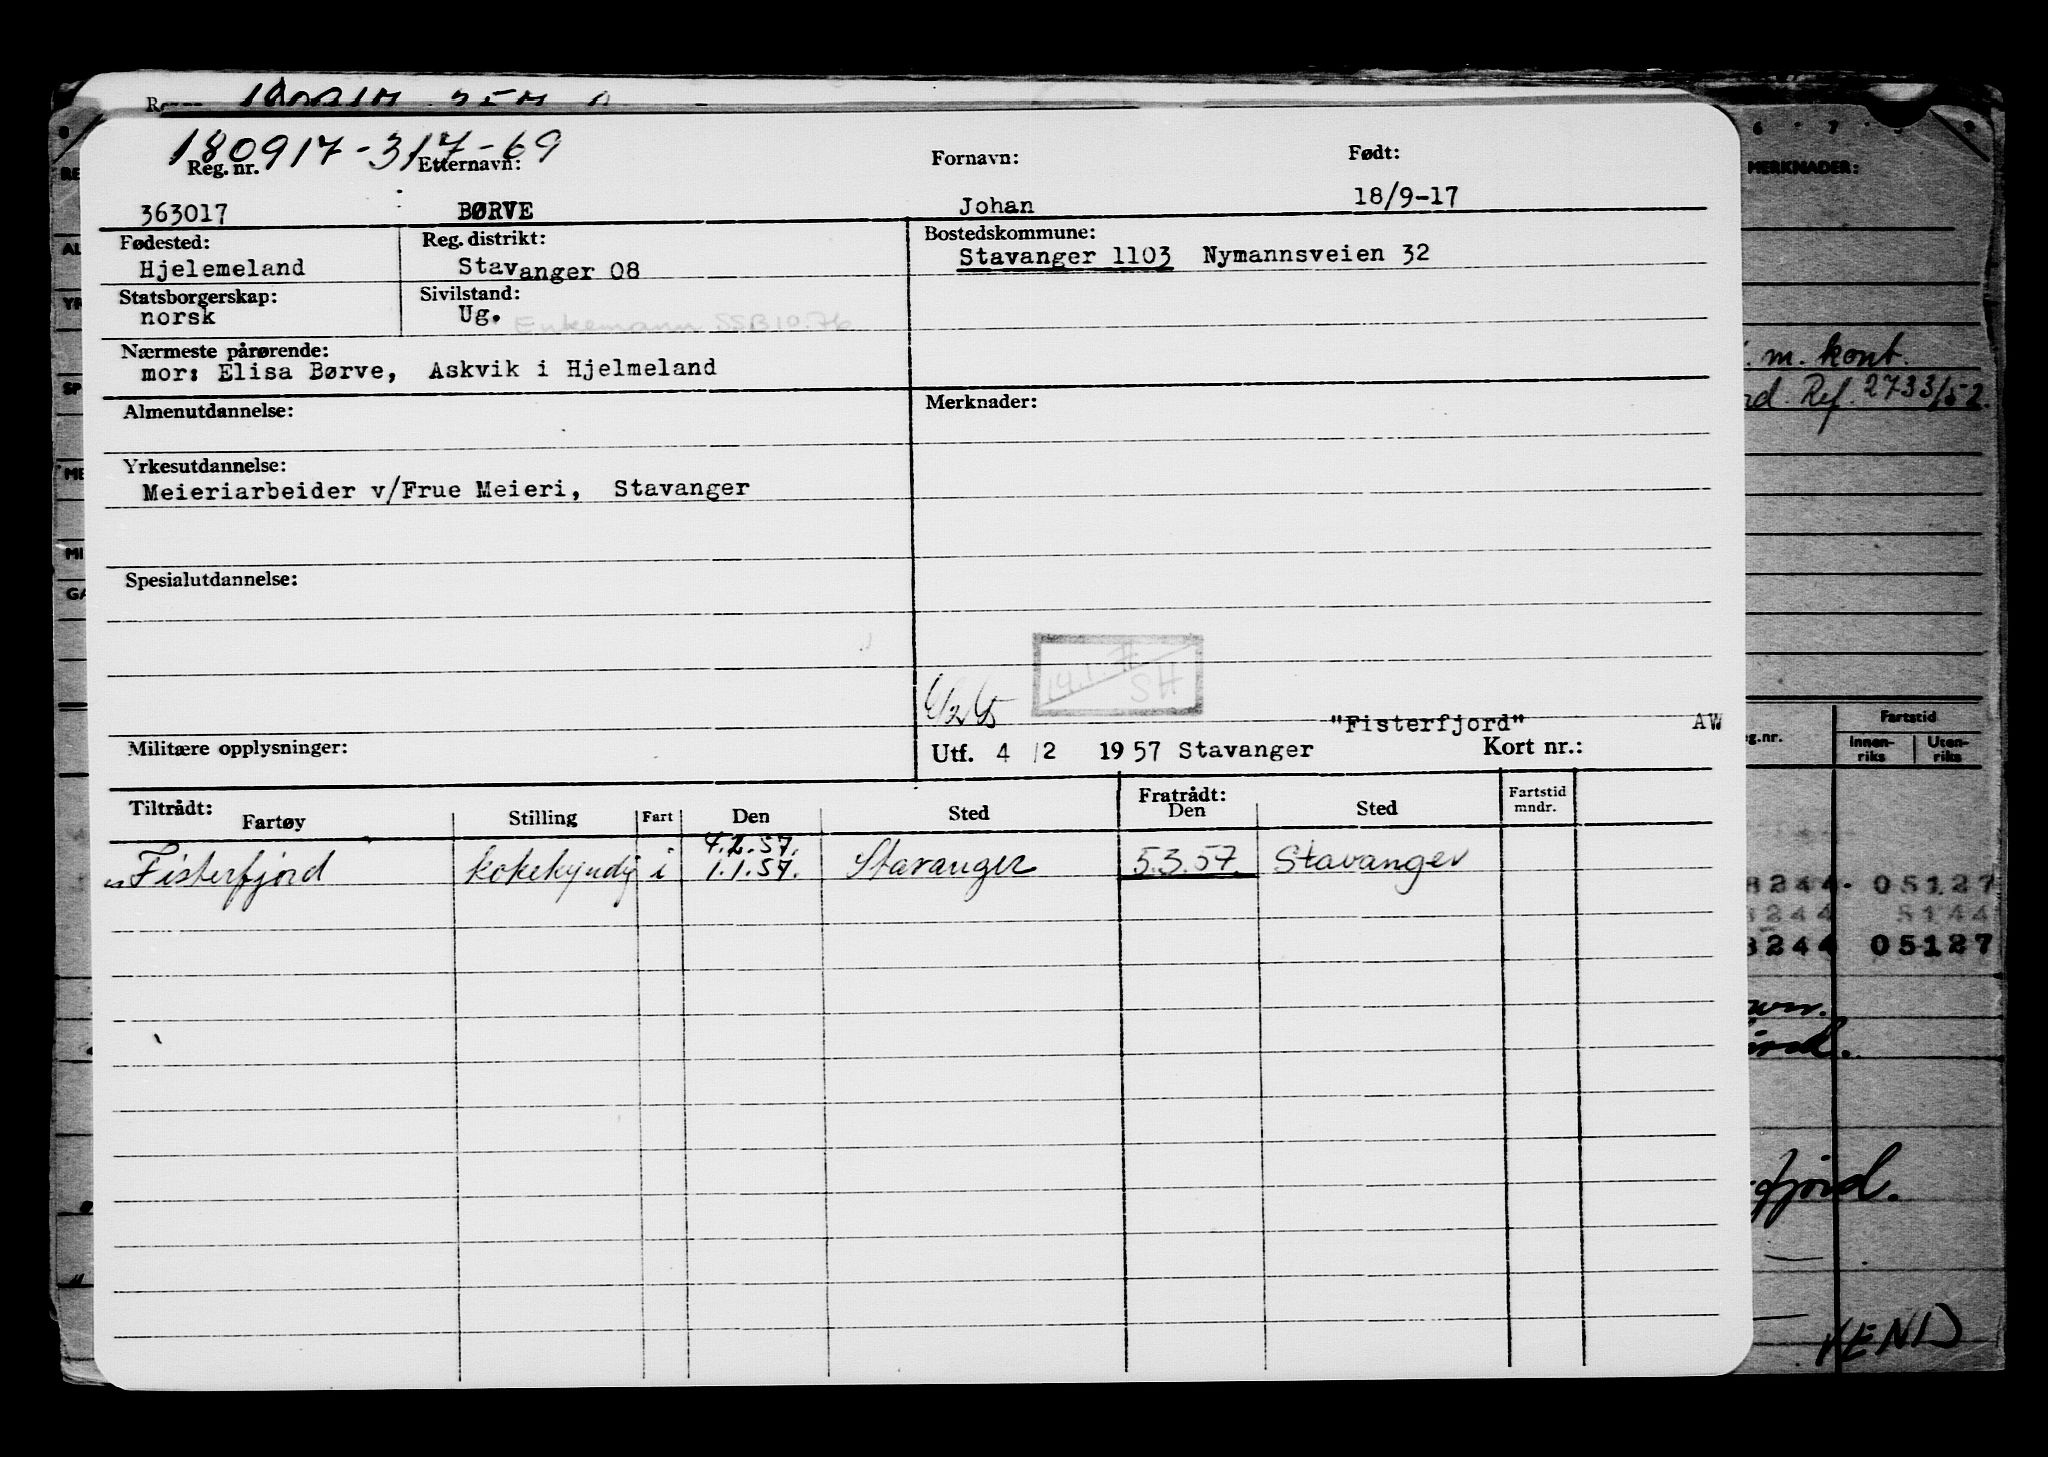 180917-317-69
Reg. nr. Etternavn: Fornavn: Født:
363017 BØRVE Johan 18/9-17
Fødested: Reg. distrikt: Bostedskommune:
Hjelemeland Stavanger 08 Stavanger 1103 Nymannsveien 32
Statsborgerskap: Sivilstand:
norsk Ug. Enkemann SSB 10.76
Nærmeste pårørende:
mor: Elisa Børve, Askvik i Hjelmeland
Almenutdannelse: Merknader:
Yrkesutdannelse:
Meieriarbeider v/Frue Meieri, Stavanger
Spesialutdannelse:
SH
"Fisterfjord" AW
Militære opplysninger: Utf. 4/2 1957 Stavanger Kort nr.:
Tiltrådt: Fratrådt: Fartstid
Fartøy Stilling Fart Den Sted Den Sted mndr.
4.2.57.
Fisterfjord kokekyndig i 1.1.57. Stavanger 5.3.57. Stavanger
6 7 9
MERKNADER:
m. kont.
Ref. 2733/52.
Fartstid
g.nr. Innen-riks Uten-riks
8244 05127
8244 5144
8244 05127
fjord.
VEND